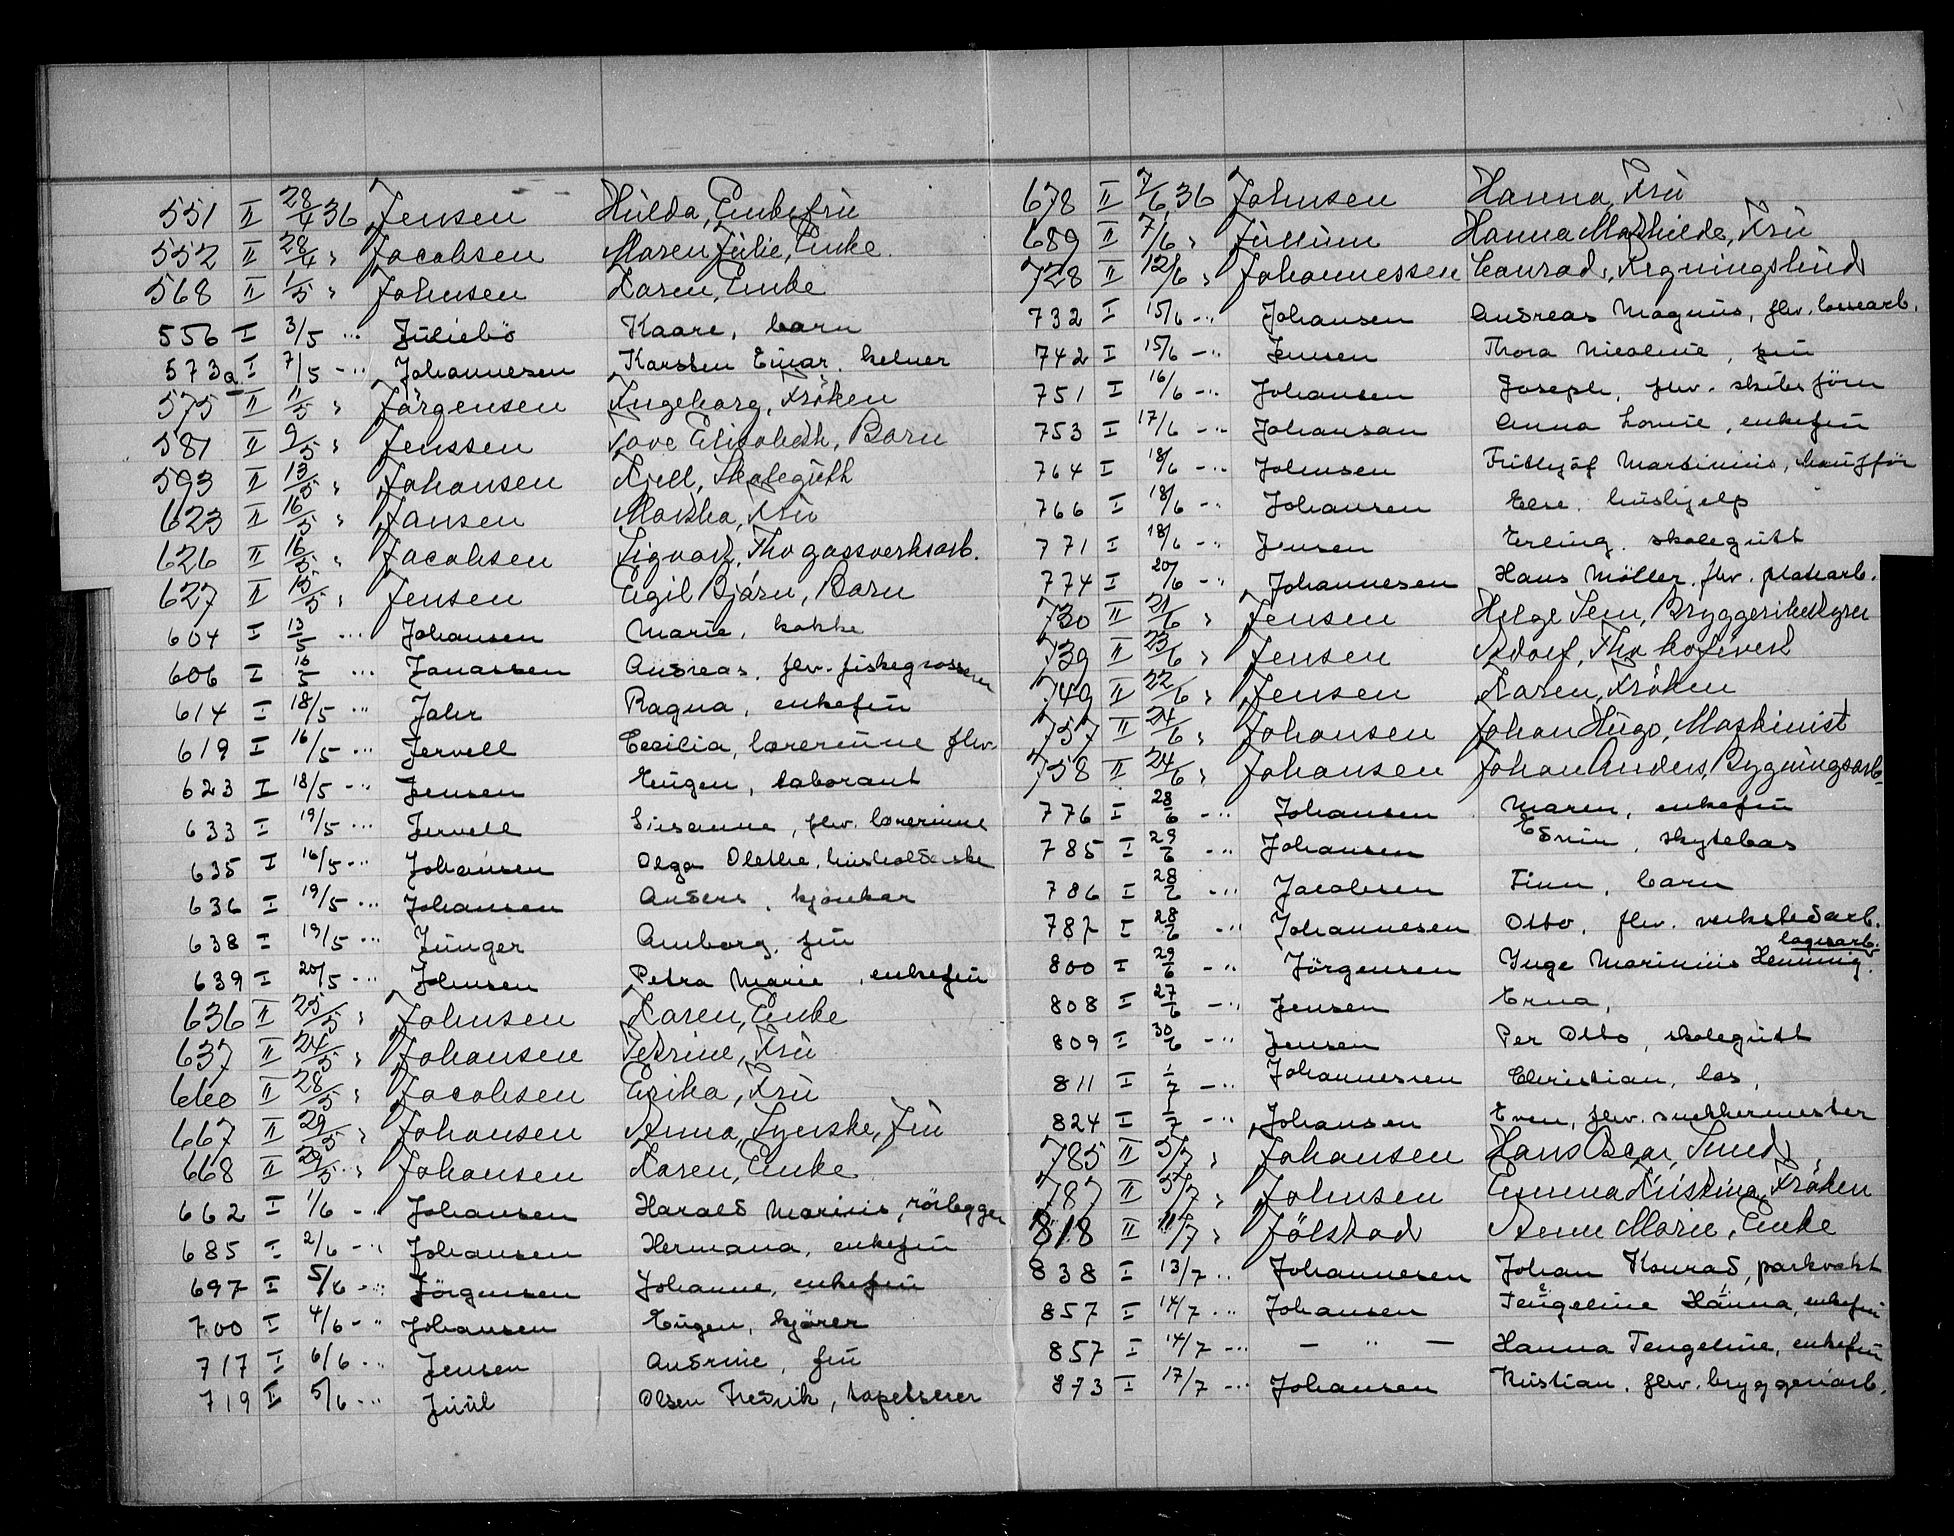 551 II 28/4 36 Jensen Hulda, Enkefrü
552 II 28/4 " Jacobsen Maren Julie, Enke.
568 II 1/5 " Johnsen Karen, Enke
556 I 3/5 -"- Juliebö Kaare, barn
573a I 7/5 -"- Johannesen Karsten Einar. kelner
575 II 11/5 " Jørgensen Ingeborg, Frøken
581 II 9/5 " Jenssen Tove Elisabeth, Barn
593 II 13/5 " Johansen Kjell, Skolegutt
623 II 16/5 " Jansen Martha, Frü
626 II 16/5 " Jacobsen Sigvart, Fhv gassverksarb.
627 II 15/5 " Jensen Egil Bjørn, Barn
604 I 13/5 -"- Johansen Marie, kokke
606 I 16/5 -"- Jonassen Andreas, fhv. fiskegrosserer
614 I 18/5 -"- Jahr Ragna, enkefrü
619 I 16/5 -"- Jervell Cecilia, lærerinne fhv.
623 I 18/5 -"- Jensen Eugen, laborant
633 I 19/5 -"- Jervell Susanne, fhv. lærerinne
635 I 16/5 -"- Johansen Olga Olethe, husholderske
636 I 19/5 -"- Johansen Anders, kjörekar
638 I 19/5 -"- Junger Amborg, frü
639 I 20/5 -"- Johnsen Petra Marie, enkefrü
636 II 25/5 " Johnsen Karen, Enke
637 II 24/5 " Johansen Petrine, Frü
660 II 28/5 " Jacobsen Erika, Frü
667 II 29/5 " Johansen Anna, Synske, Frü
668 II 29/5 " Johansen Karen, Enke
662 I 1/6 -"- Johansen Harald Marius, rörlegger
685 I 2/6 -"- Johansen Hermana, enkefrü
697 I 5/6 -"- Jörgensen Johanne, enkefrü
700 I 4/6 -"- Johansen Eugen, kjörer
717 I 6/6 -"- Jensen Andrine, frü
719 I 5/6 -"- Juul Olsen Fredrik, tapetserer
678 II 7/6 36 Johnsen Hanna, Frü
689 II 7/6 " Jullum Hanna Mathilde, Frü
728 II 12/6 " Johannessen Conrad, Regningsbud
732 I 15/6 -"- Johansen Andreas Magnus, fhv. lossearb.
742 I 15/6 -"- Jensen Thora Nicoline, frü
751 I 16/6 -"- Johansen Joseph, fhv. skibsförer
753 I 17/6 -"- Johanson Anna Lovise, enkefrü
764 I 18/6 -"- Johnsen Fritjöf Martinius, chaufför
766 I 18/6 -"- Johansen Else. hushjelp
771 I 18/6 -"- Jensen Erling. skolegutt
774 I 20/6 -"- Johannesen Hans Möller. fhv. platearb.
730 II 21/6 " Jensen Helge Sem, Bryggeribestyrer
739 II 23/6 " Jensen Adolf, Fhv hofivert
749 II 22/6 " Jensen Karen, Frøken
757 II 24/6 " Johansen Johan Hugo, Maskinist
758 II 24/6 " Johansen Johan Anders, Bygningsarb.
776 I 28/6 -"- Johansen Maren, enkefrü
785 I 29/6 -"- Johansen Edvin, skytebas
786 I 28/6 -"- Jacobsen Finn, barn
787 I 28/6 -"- Johannesen Otto, fhv. verkstedarb.
lagerarb.
800 I 29/6 -"- Jörgensen Inge Marinius Henning.
808 I 27/6 -"- Jensen Erna,
809 I 30/6 -"- Jensen Per Otto, skolegutt
811 I 1/7 -"- Johannesen Christian, los,
824 I 1/7 -"- Johansen Even, fhv. snekkermester
785 II 5/7 " Johansen Hans Oscar, Smed
787 II 5/7 " Johnsen Emma Kristina, Frøken
818 II 11/7 " Jølstad Anne Marie, Enke
838 I 13/7 -"- Johannesen Johan Konrad, parkvakt
857 I 14/7 -"- Johansen Tengeline Hanna, enkefrü
857 I 14/7 -"- — " — Hanna Tengeline, enkefrü
873 I 17/7 -"- Johansen Kristian. fhv. bryggeriarb.